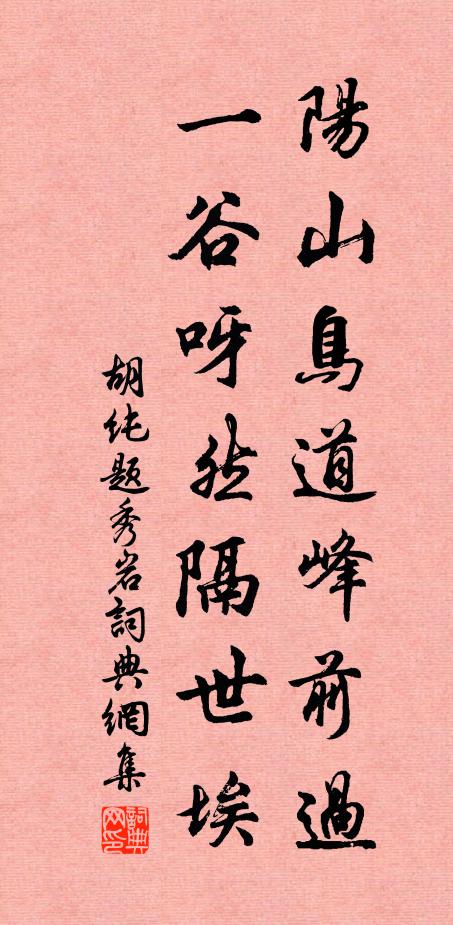 陽山鳥道峰前過
一谷呀然隔世埃
胡純题秀岩詞典網集
詞典网印